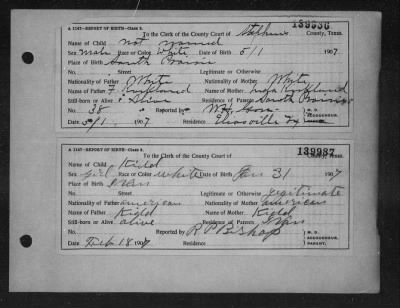 139936
A 1147-REPORT OF BIRTH-Class 3.
To the Clerk of the County Court of Stephens County, Texas.
Name of Child not named
Sex Male Race or Color White Date of Birth 5/1 1907
Place of Birth South Prairie
Street Legitimate or Otherwise
Nationality of Father White Nationality of Mother White
Name of Father Name of Mother
Still-born or Alive Alive Residence South Prairie
No. 38 Reported by
Date 5/1 1907 Residence Eliasville Tx
139937
A 1147-REPORT OF BIRTH-Class 3.
To the Clerk of the County Court of County, Texas.
Name of Child Kidd
Sex Girl Race or Color White Date of Birth Jan 31 1907
Place of Birth Ivan
Street Legitimate or Otherwise legitimate
Nationality of Father american Nationality of Mother american
Name of Father Kidd Name of Mother Kidd
Still-born or Alive alive Residence Ivan
No. Reported by R P Bishop M. D. ACCOUCHEUR, PARENT.
Date Feb 18 1907 Residence